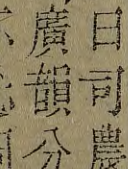 日司農
廣韻分